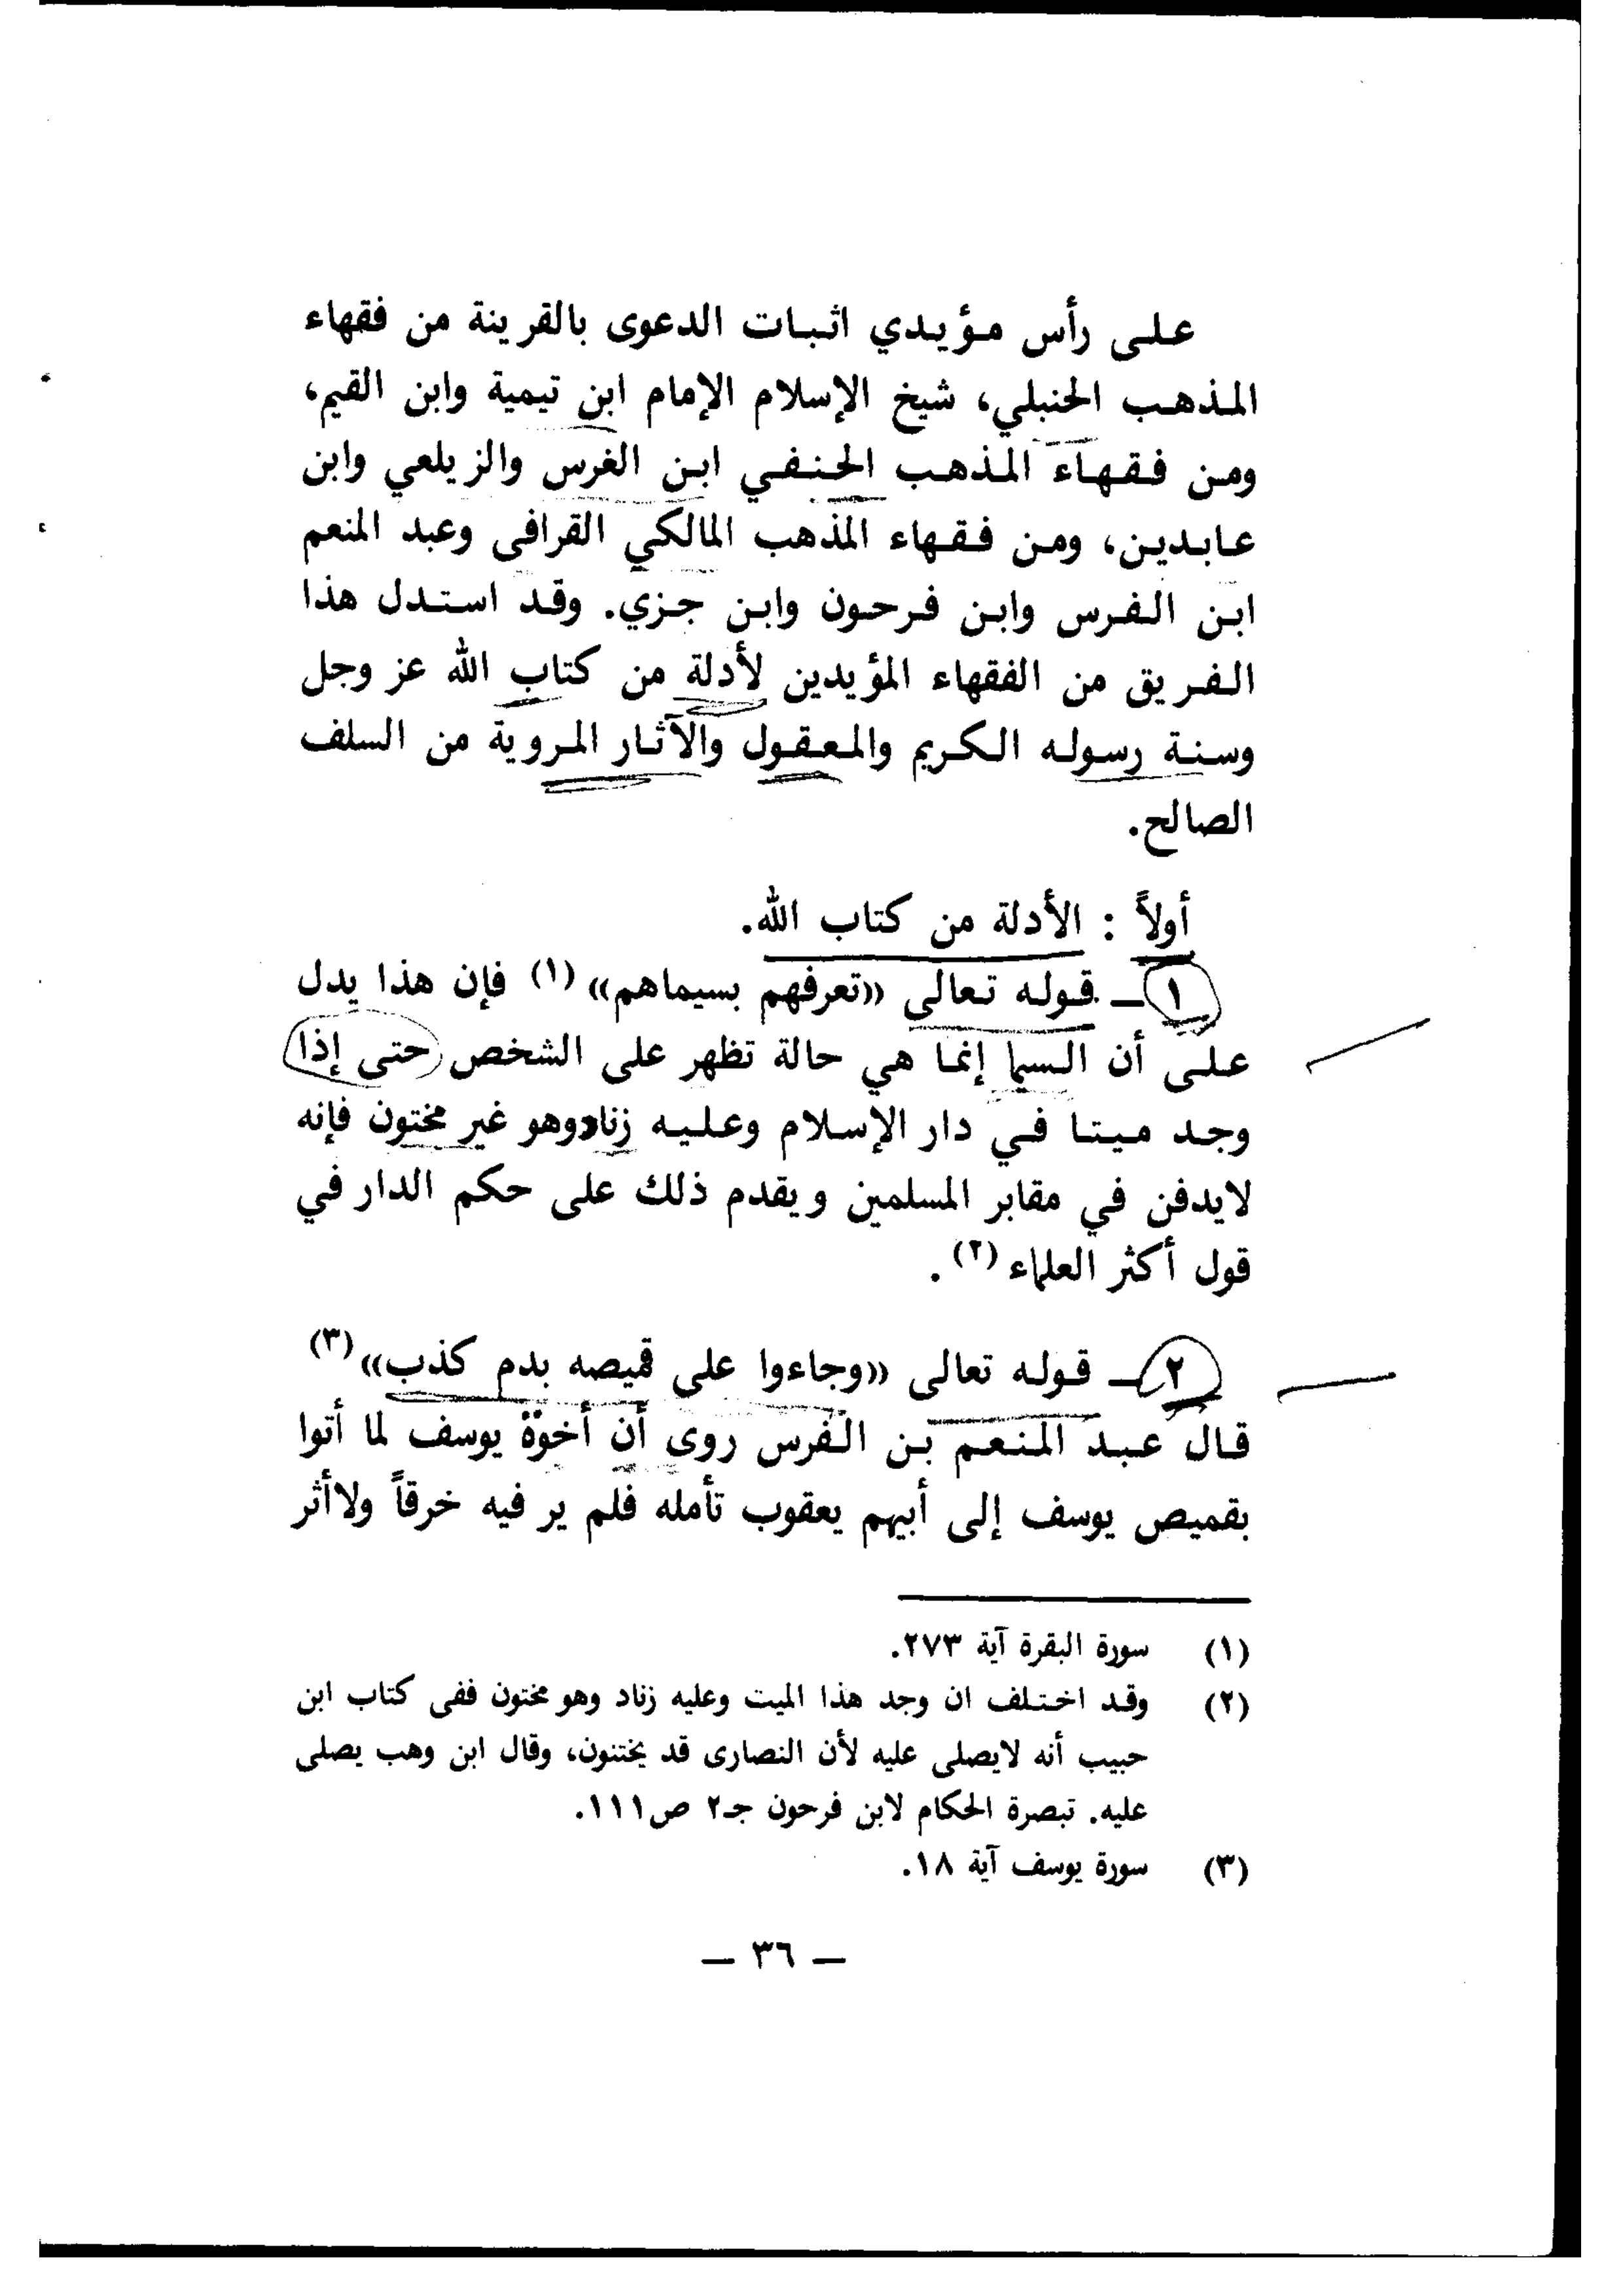 على رأس مؤيدي اثبات الدعوى بالقرينة من فقهاء
المذهب الحنبلي، شيخ الإسلام الإمام ابن تيمية وابن القيم،
ومن فقهاء المذهب الحنفي ابن الغرس والزيلعي وابن
عابدين، ومن فقهاء المذهب المالكي القرافى وعبد المنعم
ابن الفرس وابن فرحون وابن جزي. وقد استدل هذا
الفريق من الفقهاء المؤيدين لأدلة من كتاب الله عز وجل
وسنة رسوله الكريم والمعقول والآثار المروية من السلف
الصالح.
أولاً : الأدلة من كتاب الله.
١ــ قوله تعالى «تعرفهم بسيماهم» (١) فإن هذا يدل
على أن السيما إنما هي حالة تظهر على الشخص حتى إذا
وجد ميتا في دار الإسلام وعليه زناد وهو غير مختون فإنه
لايدفن في مقابر المسلمين ويقدم ذلك على حكم الدار في
قول أكثر العلماء (٢) .
٢ــ قوله تعالى «وجاءوا على قميصه بدم كذب» (٣)
قال عبد المنعم بن الفرس روى أن أخوة يوسف لما أتوا
بقميص يوسف إلى أبيهم يعقوب تأمله فلم ير فيه خرقاً ولاأثر
(١) سورة البقرة آية ٢٧٣.
(٢) وقد اختلف ان وجد هذا الميت وعليه زناد وهو مختون ففى كتاب ابن
حبيب أنه لايصلى عليه لأن النصارى قد يختنون، وقال ابن وهب يصلى
عليه. تبصرة الحكام لابن فرحون جـ٢ ص١١١.
(٣) سورة يوسف آية ١٨.
ــ ٣٦ ــ